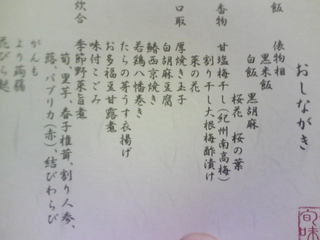 おしながき
飯 俵物相
黒米飯 黒胡麻
白飯 桜花 桜の葉
香物 甘塩梅干し(紀州南高梅)
割り干し大根梅酢漬け
菜の花
口取 厚焼き玉子
白胡麻豆腐
鰆西京焼き
若鶏八幡巻き
たらの芽うす衣揚げ
お多福豆甘露煮
味付こごみ
炊合 季節野菜旨煮
筍、里芋、春子椎茸、割り人参、
蕗、パプリカ(赤)、結びわらび
がんも
より蒟蒻
花びら麩
旬味